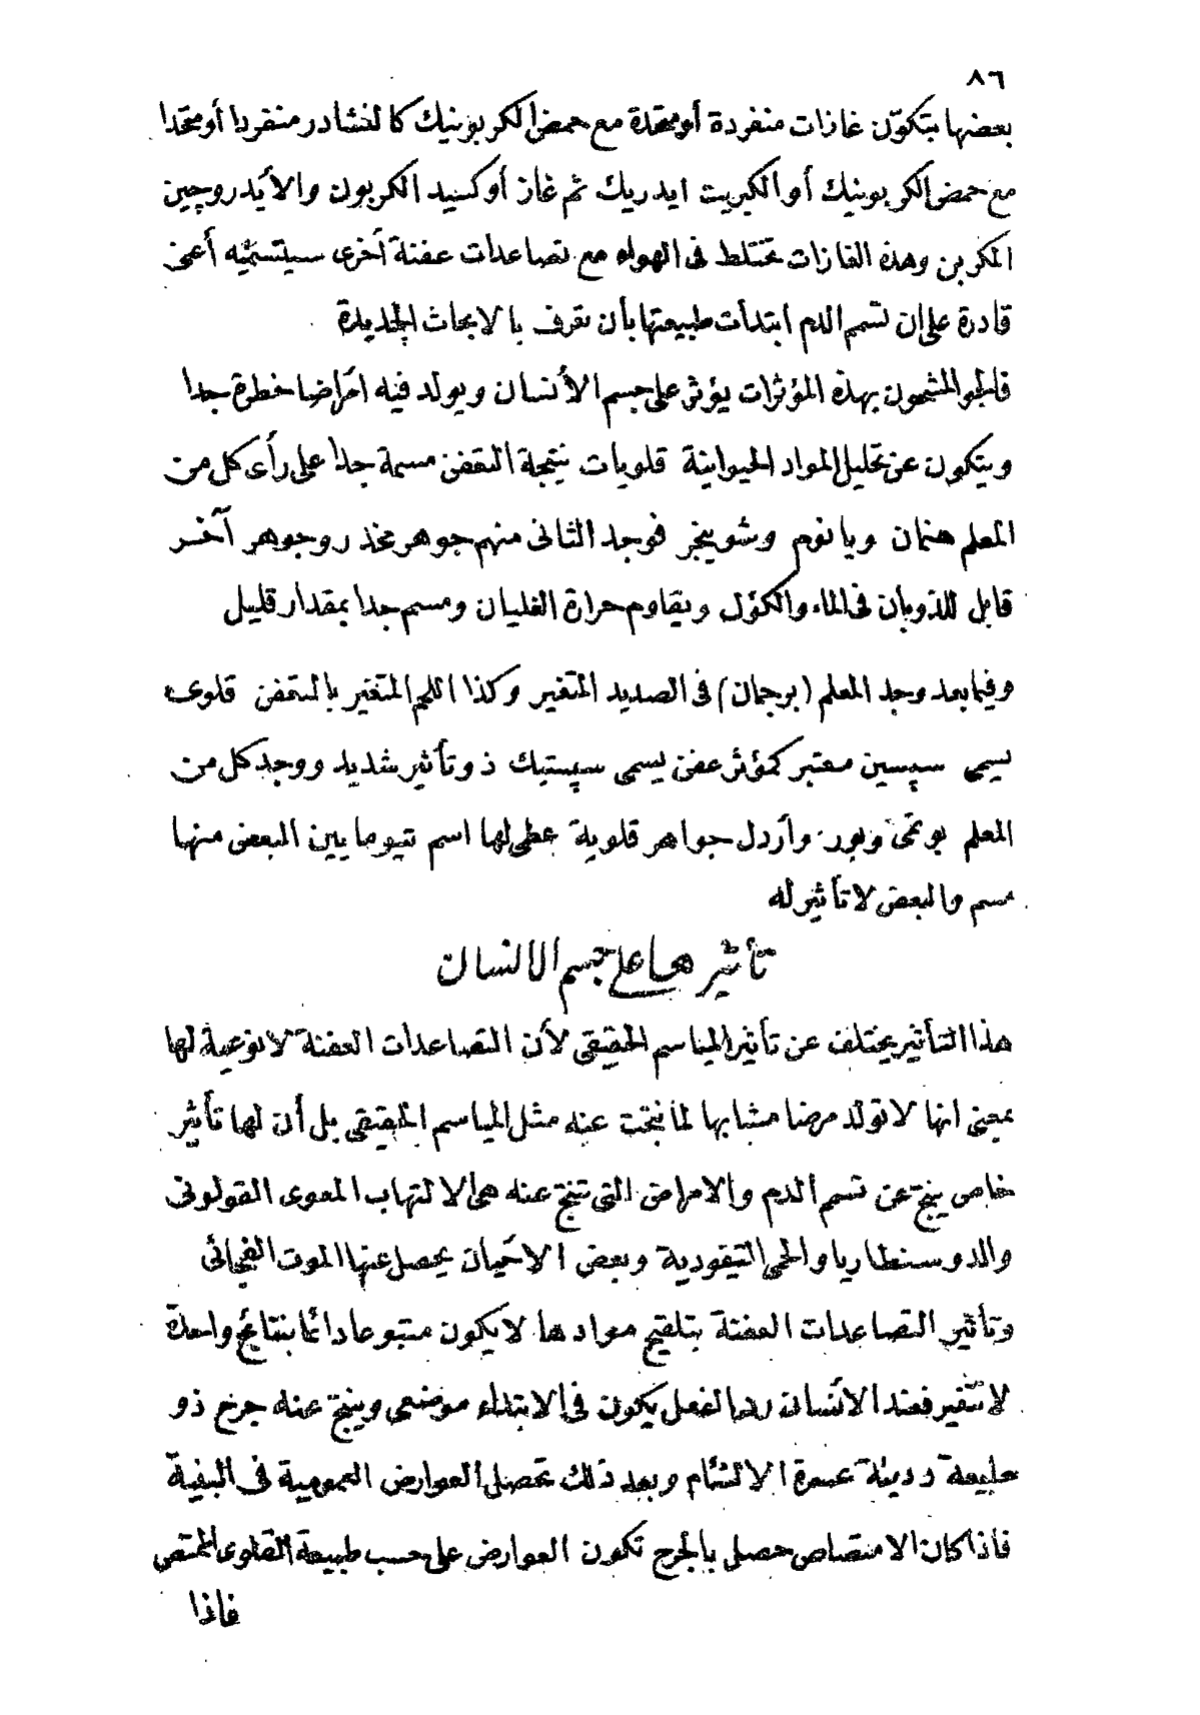 ٨٦
بعضها يتكوّن غازات منفردة أو متحدة مع حمض الكربونيك كالنشادر منفردا أو متحدا
مع حمض الكربونيك أو الكبريت ايدريك ثم غاز أوكسيد الكربون والأيدروچين
المكربن وهذه الغازات تختلط فى الهواء مع تصاعدات عفنة أخرى سيلتسمّيه أعنى
قادرة على ان تسمم الدم ابتدأت طبيعتها بأن تعرف بالابحاث الجديدة
فالجو المشحون بهذه المؤثرات يؤثر على جسم الأنسان ويولد فيه امراضا خطرة جدا
ويتكون عن تحليل المواد الحيوانية قلويات نتيجة التعفن مسمة جدا على رأى كل من
المعلم هنمان وبانوم وشوينجر فوجد الثانى منهم جوهر مخدر وجوهر آخر
قابل للذوبان فى الماء والكؤل ويقاوم حرارة الغليان ومسم جدا بمقدار قليل
وفيما بعد وجد المعلم (برجمان) فى الصديد المتغير وكذا اللحم المتغير بالتعفن قلوى
يسمى سپسين معتبر كمؤثر عفن يسمى سپستيك ذو تأثير شديد ووجد كل من
المعلم بوتمى وبور وأردل جواهر قلوية عطى لها اسم تتيوما يين البعض منها
مسم والبعض لا تأثير له
تأثيرها على جسم الانسان
هذا التأثير يختلف عن تأثير المياسم الحقيقى لأن التصاعدات العفنة لا نوعية لها
بمعنى انها لا تولد مرضا مشابها لما نتجت عنه مثل المياسم الحقيقى بل أن لها تأثير
خاص ينتج عن تسمم الدم والامراض التى تنتج عنه هى الالتهاب المعوى القولونى
والدوسنطاريا والحمى التيفودية وبعض الاحيان يحصل عنها الموت الفجائى
وتأثير التصاعدات العفنة بتلقيح موادها لا يكون متبوعا دائما بنتائج واحدة
لا تتغير فعند الأنسان رد الفعل يكون فى الابتداء موضعى وينتج عنه جرح ذو
طبيعة رديئة عسرة الالتئام وبعد ذلك تحصل العوارض العمومية فى البنية
فاذا كان الامتصاص حصل بالجرح تكون العوارض على حسب طبيعة القلوى الممتص
فاذا